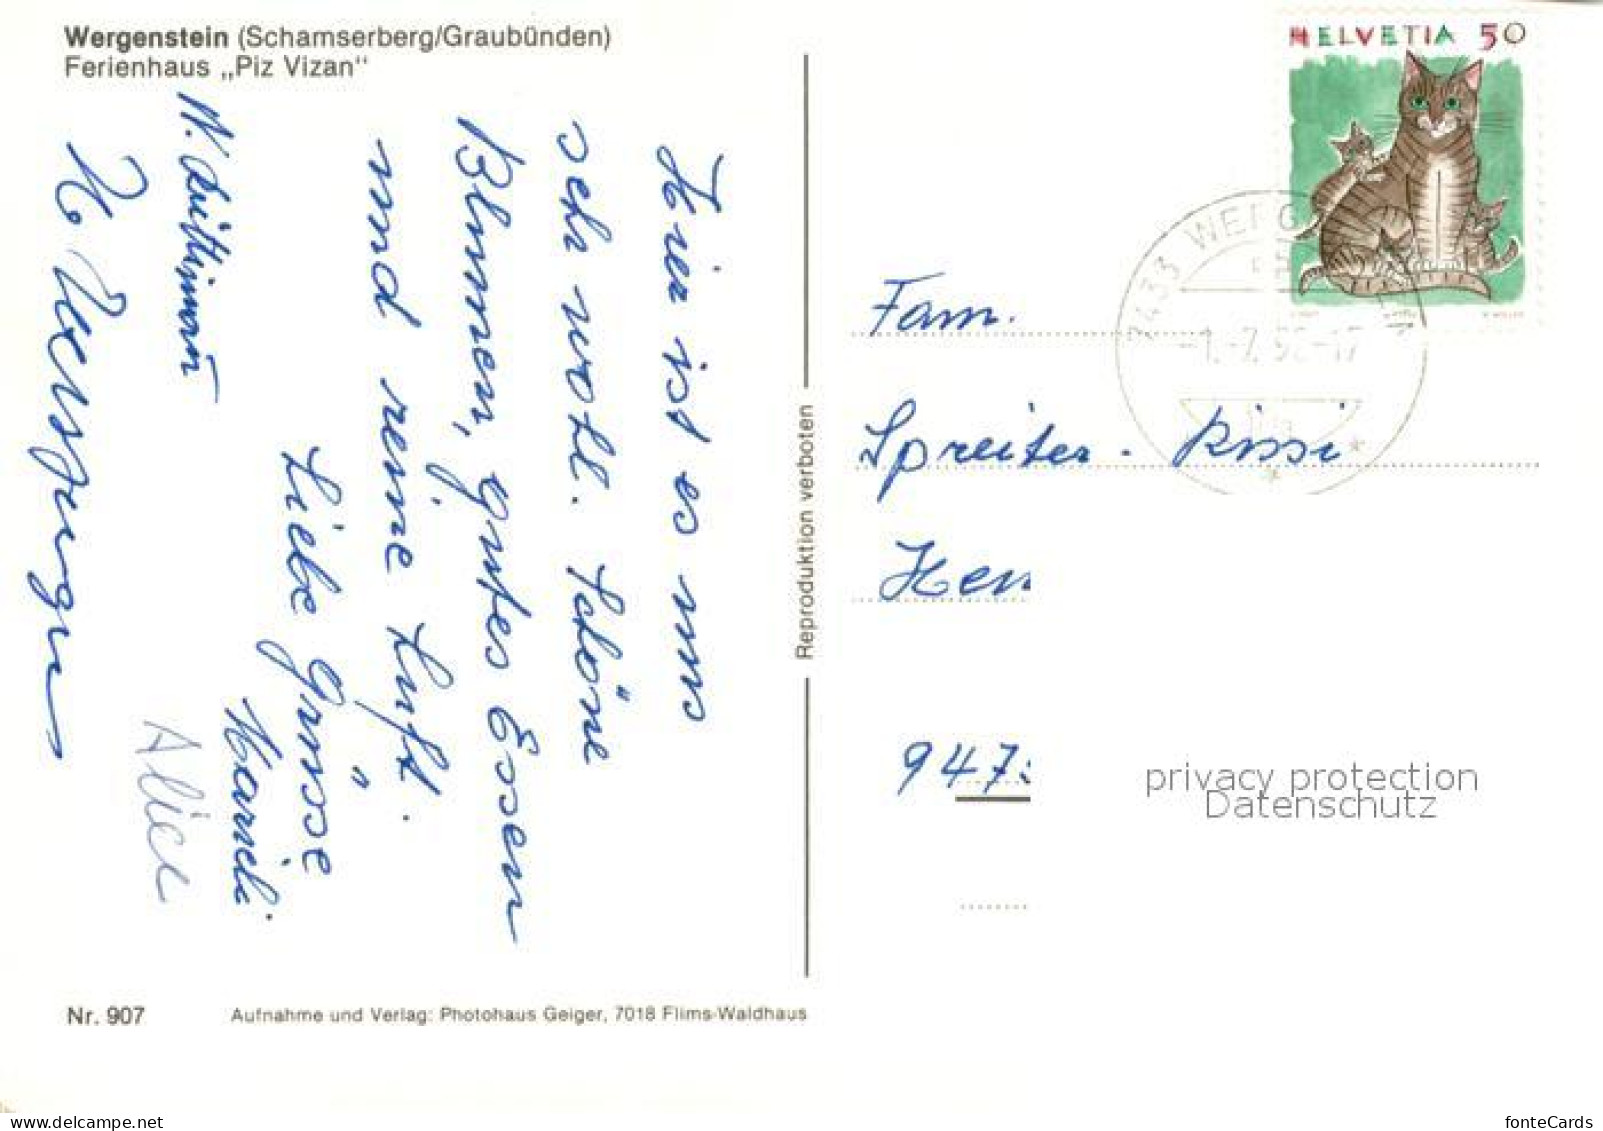 Wergenstein (Schamserberg/Graubünden)
Ferienhaus „Piz Vizan"
Hier ist es uns
seh wohl. Schöne
Blumen, gutes Essen
und reine Luft.
Liebe Grüsse
Marieli.
Alice
Nr. 907
Aufnahme und Verlag: Photohaus Geiger, 7018 Flims-Waldhaus
Reproduktion verboten
HELVETIA 50
7433 WERG
-1.-7.
Fam.
Spreiter-
Hen
947
privacy protection
Datenschutz
www.delcampe.net
fonteCards